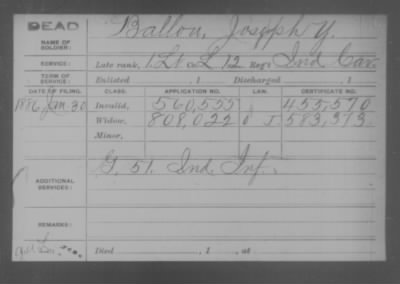 DEAD
NAME OF SOLDIER: Ballou, Joseph Y.
SERVICE: Late rank, 1 Lt Co. L, 12 Reg't Ind Cav.
TERM OF SERVICE: Enlisted , 1 Discharged , 1
DATE OF FILING. CLASS. APPLICATION NO. LAW. CERTIFICATE NO.
1886 Jan 30 Invalid, 560,555 455,570
Widow, 808,022 J 583,373
Minor,
ADDITIONAL SERVICES: G. 51. Ind. Inf.
REMARKS:
Died , 1 , at